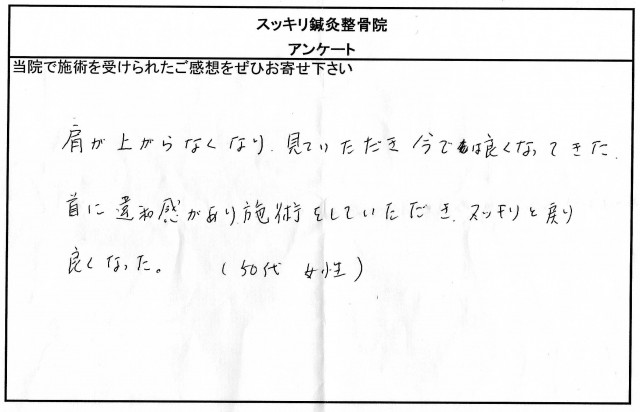 スッキリ鍼灸整骨院
アンケート
当院で施術を受けられたご感想をぜひお寄せ下さい
肩が上がらなくなり、見ていただき今では良くなってきた。
首に違和感があり施術をしていただき、スッキリと戻り
良くなった。 (50代 女性)